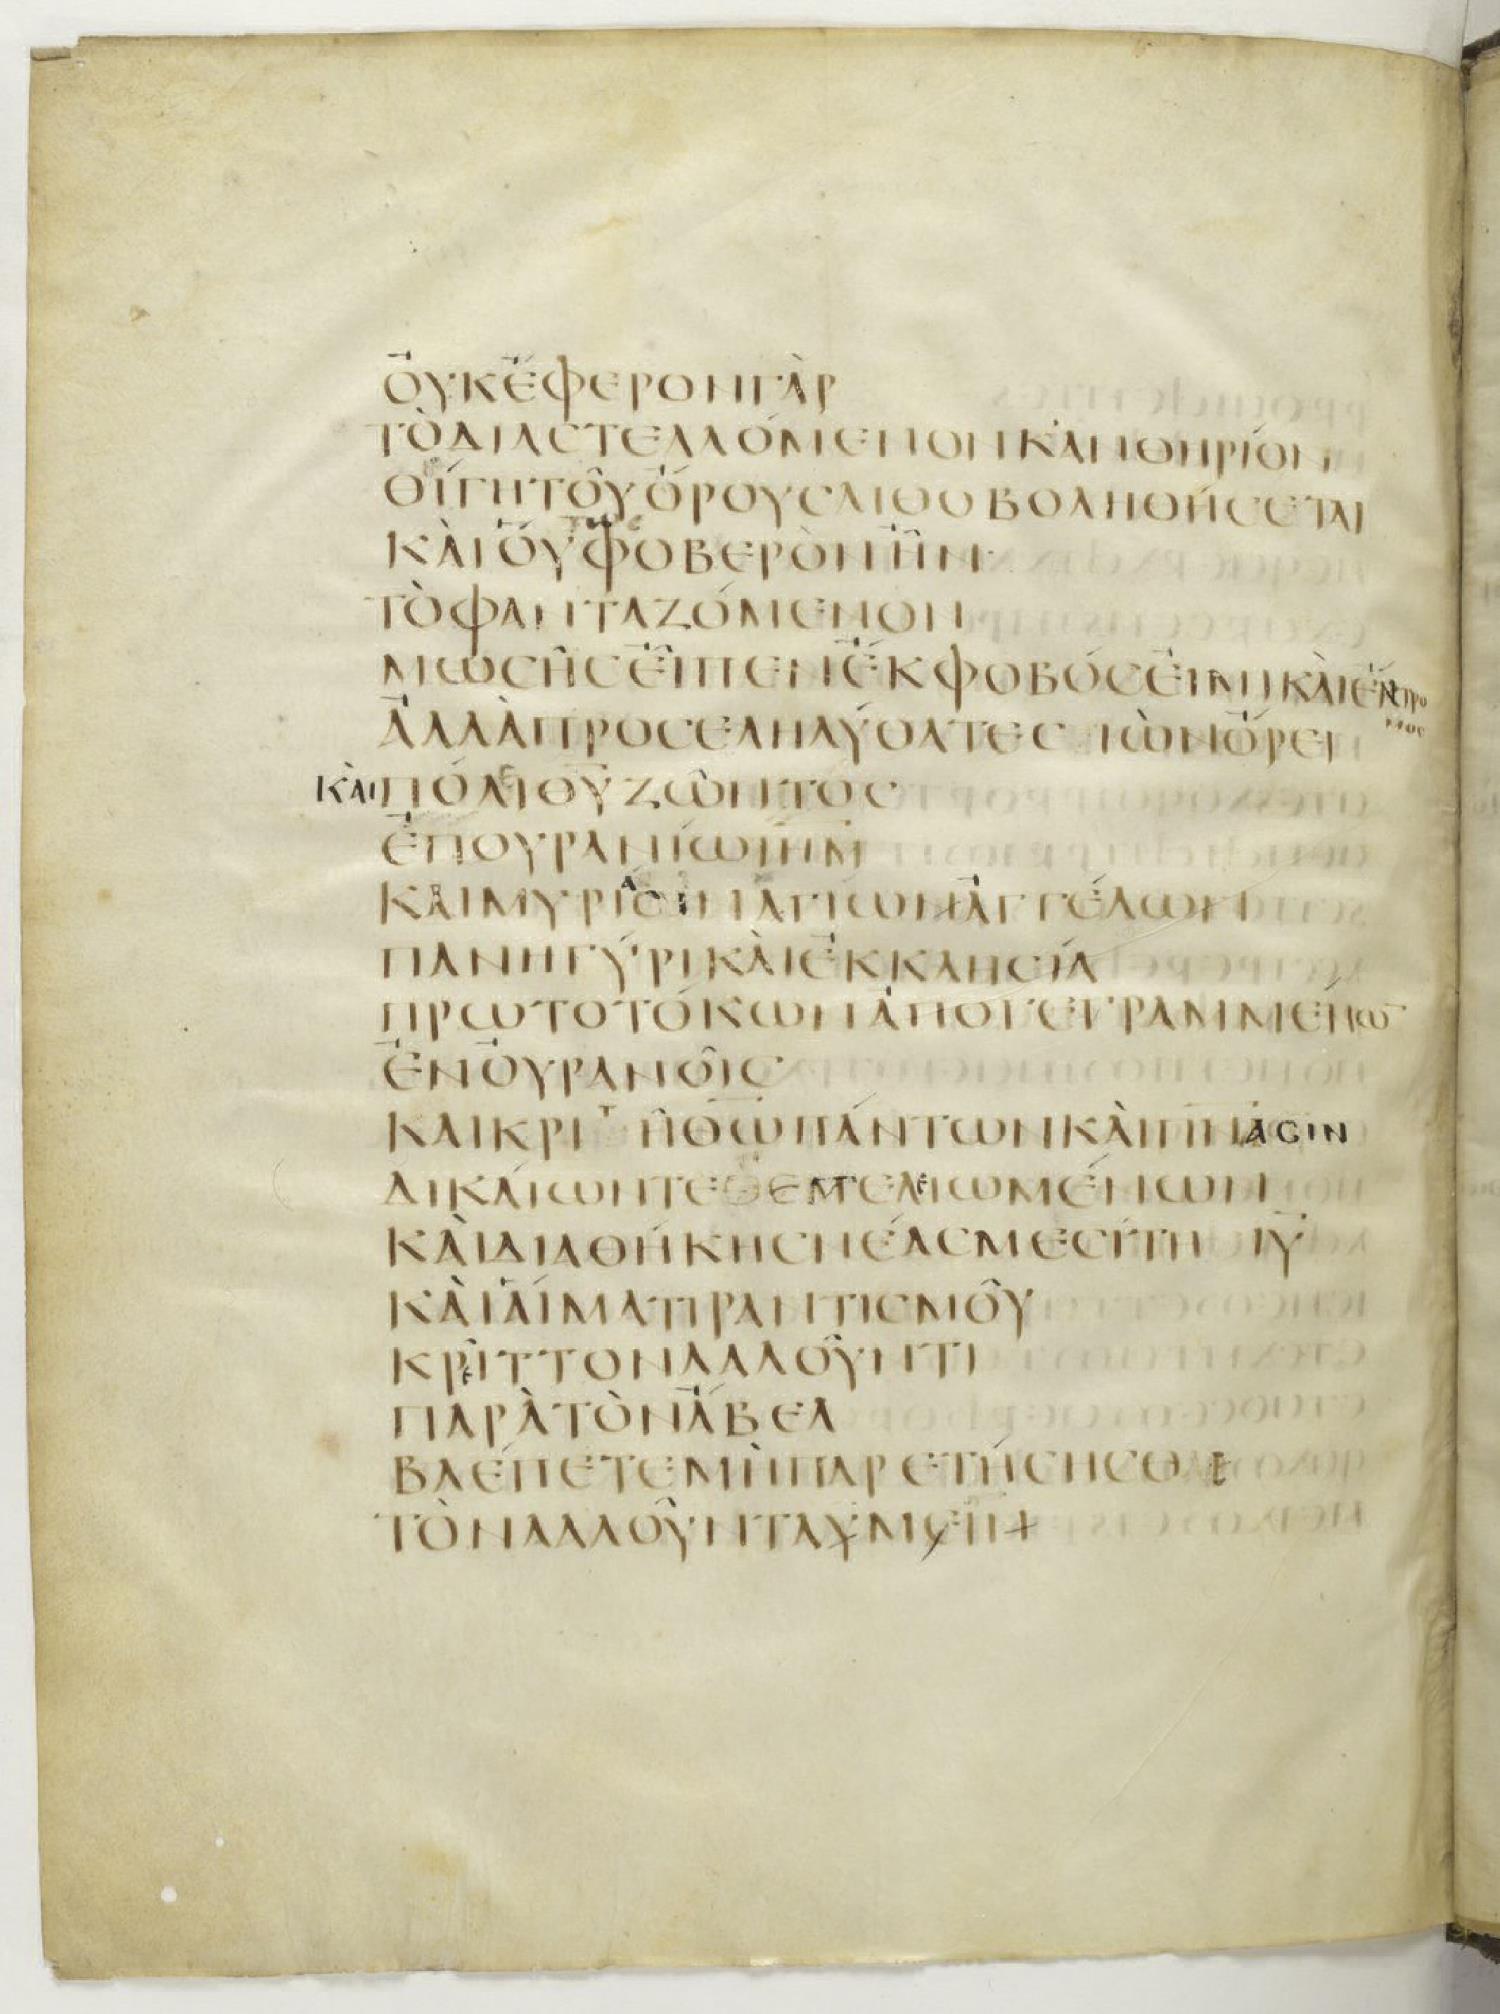 ΟΥΚΕΦΕΡΟΝΓΑΡ
ΤΟΔΙΑСΤΕΛΛΟΜΕΝΟΝΚΑΝΘΗΡΙΟΝ
ΘΙΓΗΤΟΥΟΡΟΥСΛΙΘΟΒΟΛΗΘΗСΕΤΑΙ
ΚΑΙΟΥΦΟΒΕΡΟΝΗΝ
ΤΟΦΑΝΤΑΖΟΜΕΝΟΝ
ΜΩСΗСΕΙΠΕΝΕΚΦΟΒΟСΕΙΜΙΚΑΙΕΝΤΡΟ
ΜΟС
ΑΛΛΑΠΡΟСΕΛΗΛΥΘΑΤΕСΙΩΝΟΡΕΙ
ΚΑΙΠΟΛΙΘΥΖΩΝΤΟС
ΕΠΟΥΡΑΝΙΩΙΗΜ
ΚΑΙΜΥΡΙΑСΙΝΑΓΙΩΝΑΓΓΕΛΩΝ
ΠΑΝΗΓΥΡΙΚΑΙΕΚΚΛΗСΙΑ
ΠΡΩΤΟΤΟΚΩΝΑΠΟΓΕΓΡΑΜΜΕΝΩ̅
ΕΝΟΥΡΑΝΟΙС
ΚΑΙΚΡΙΤΗΘΩΠΑΝΤΩΝΚΑΙΠΝΑСΙΝ
ΔΙΚΑΙΩΝΤΕΘΕΜΕΛΙΩΜΕΝΩΝ
ΚΑΙΔΙΑΘΗΚΗСΝΕΑСΜΕСΙΤΗΙΥ
ΚΑΙΑΙΜΑΤΙΡΑΝΤΙСΜΟΥ
ΚΡΙΤΤΟΝΛΑΛΟΥΝΤΙ
ΠΑΡΑΤΟΝΑΒΕΛ
ΒΛΕΠΕΤΕΜΗΠΑΡΕΤΗСΗСΘΕ
ΤΟΝΛΑΛΟΥΝΤΑΥΜΕΙΝ